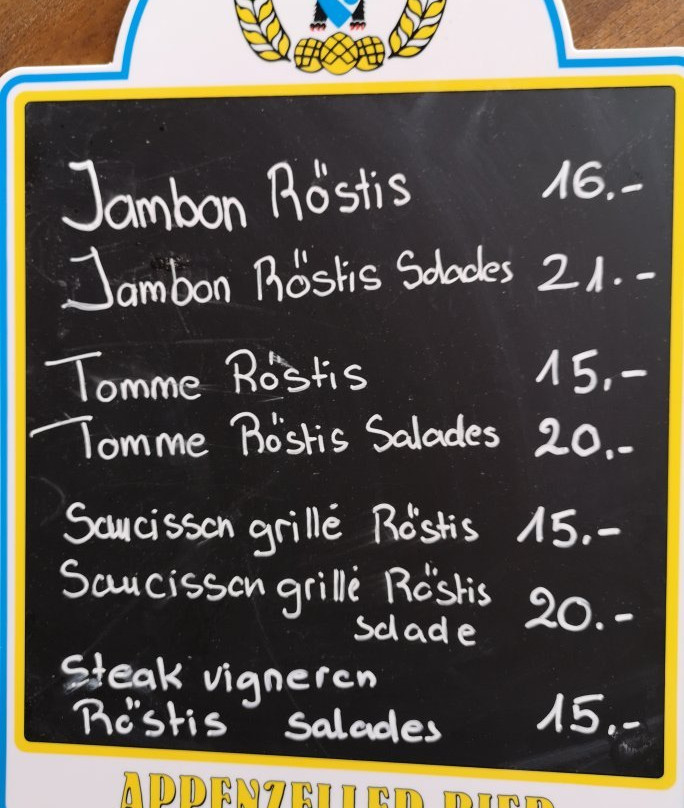 Jambon Röstis 16.-
Jambon Röstis Salades 21.-
Tomme Röstis 15.-
Tomme Röstis Salades 20.-
Saucisson grillé Röstis 15.-
Saucisson grillé Röstis
Salade 20.-
Steak vigneron
Röstis Salades 15.-
APPENZELLER BIER